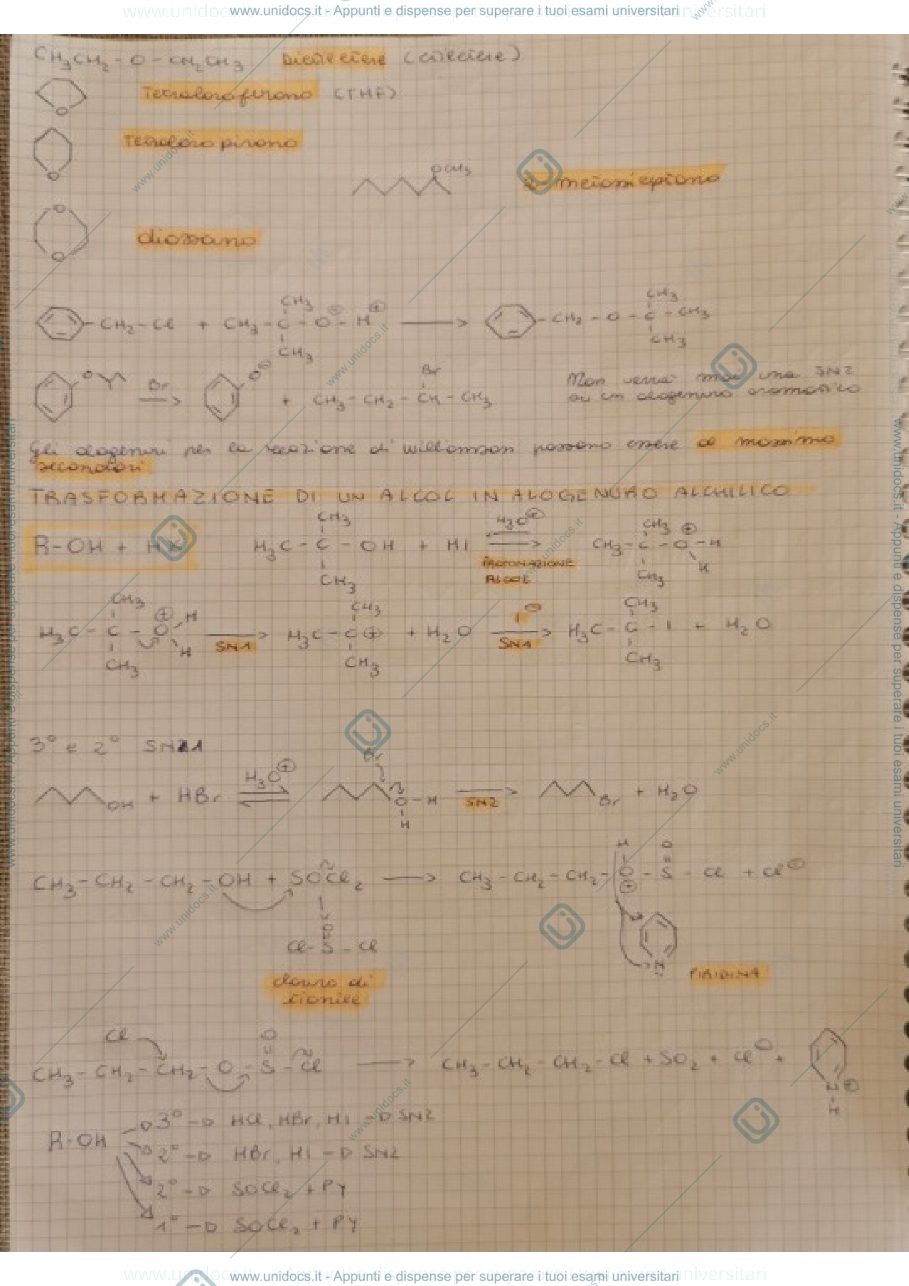 www.unidocs.it - Appunti e dispense per superare i tuoi esami universitari
CH3CH2 - O - CH2CH3 Dietiletere (etiletere)
Tetraidrofurano (THF)
O
Tetraidropirano
O
OCH3
2-metossieptano
O
diossano
O
CH3
CH2 - Cl + CH3 - C - O⊖ - H⊕ → CH2 - O - C - CH3
CH3
O Br → O⊖ + CH3 - CH2 - CH - CH3
Br
Non verrà mai una SN2
su un alogenuro aromatico
Gli alogenuri per la reazione di williamson possono essere al massimo
secondari
TRASFORMAZIONE DI UN ALCOL IN ALOGENURO ALCHILICO
R-OH + HX H3C - C - OH + HI H3O⊕ → CH3 - C - O⊕ - H
CH3 CH3 H
PROTONAZIONE
ALCOL
H3C - C - O⊕ H → H3C - C⊕ + H2O → H3C - C - I + H2O
CH3 H SN1 CH3 I⊖ SN1 CH3
3° e 2° SN1
OH + HBr H3O⊕ ⇌ Br O - H → Br + H2O
H SN2
CH3 - CH2 - CH2 - OH + SOCl2 → CH3 - CH2 - CH2 - O⊕ - S - Cl + Cl⊖
H O
O
Cl - S - Cl
N
PIRIDINA
cloruro di
tionile
Cl O
CH3 - CH2 - CH2 - O - S - Cl → CH3 - CH2 - CH2 - Cl + SO2 + Cl⊖ +
N⊕
H
R-OH
3° → HCl, HBr, HI → SN2
2° → HBr, HI → SN2
2° → SOCl2 + PY
1° → SOCl2 + PY
www.unidocs.it - Appunti e dispense per superare i tuoi esami universitari